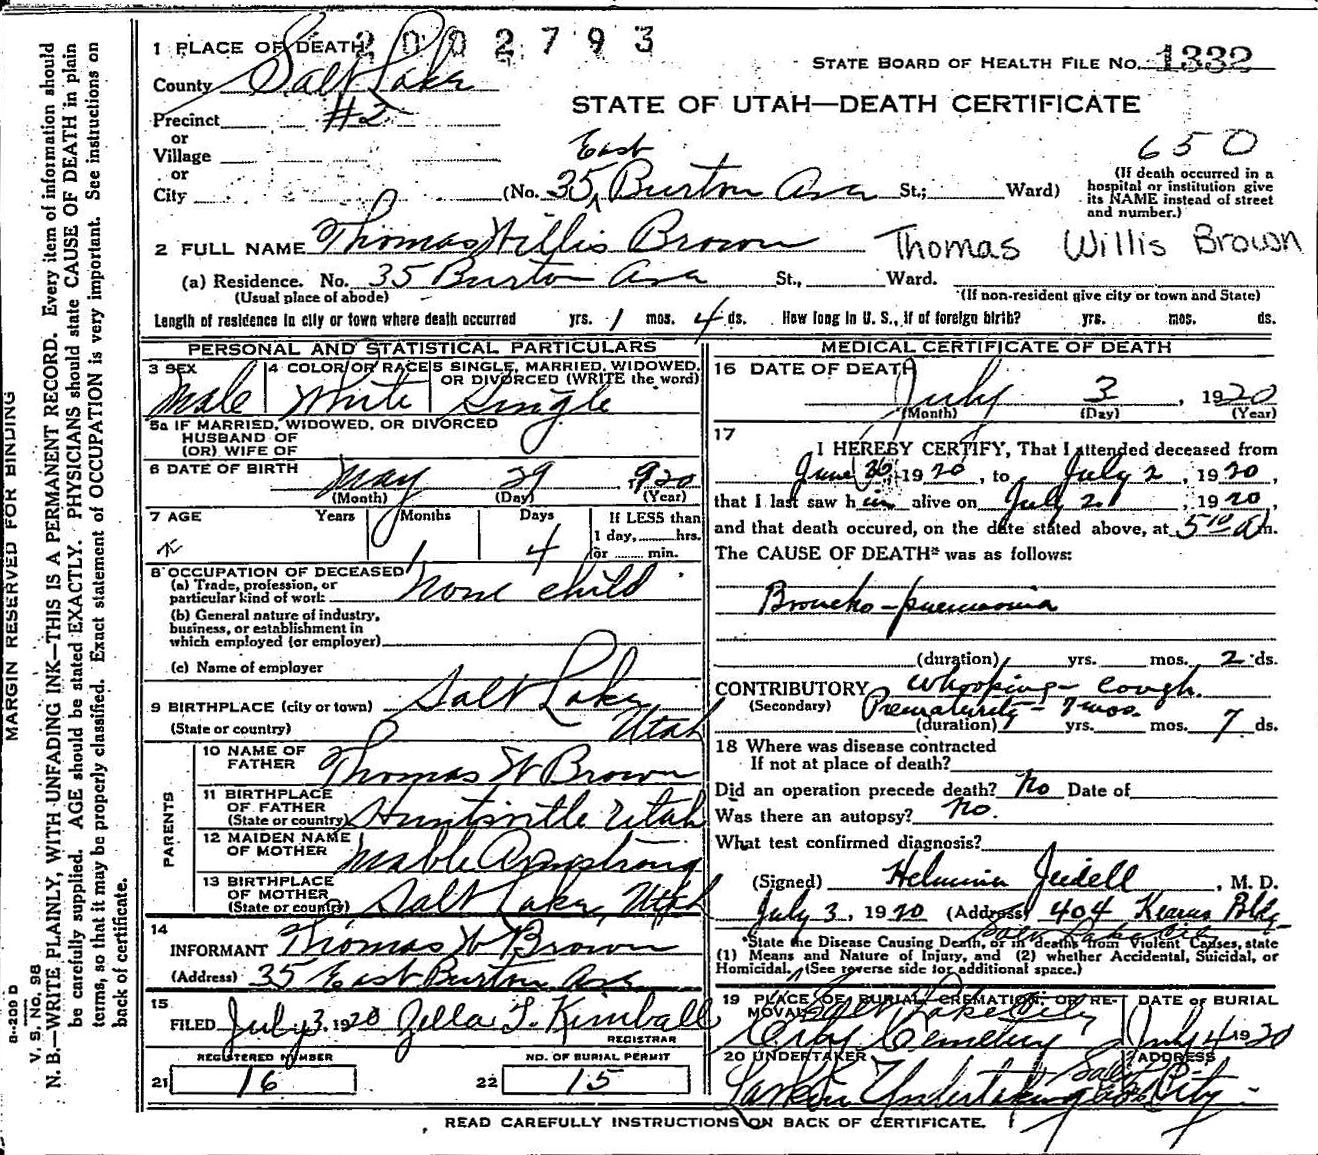 2002793
1 PLACE OF DEATH
STATE BOARD OF HEALTH FILE No. 1332
County Salt Lake
STATE OF UTAH—DEATH CERTIFICATE
Precinct #2
or
Village
or
City
East
(No. 35 Burton Ave St.; Ward)
650
(If death occurred in a
hospital or institution give
its NAME instead of street
and number.)
2 FULL NAME Thomas Willis Brown Thomas Willis Brown
(a) Residence. No. 35 Burton Ave St., Ward.
(Usual place of abode) (If non-resident give city or town and State)
Length of residence in city or town where death occurred yrs. 1 mos. 4 ds. How long in U. S., if of foreign birth? yrs. mos. ds.
PERSONAL AND STATISTICAL PARTICULARS
3 SEX 4 COLOR OR RACE 5 SINGLE, MARRIED, WIDOWED,
OR DIVORCED (WRITE the word)
Male White Single
5a IF MARRIED, WIDOWED, OR DIVORCED
HUSBAND OF
(OR) WIFE OF
6 DATE OF BIRTH May 29, 1920
(Month) (Day) (Year)
7 AGE Years Months Days If LESS than
1 day, hrs.
1 4 or min.
8 OCCUPATION OF DECEASED
(a) Trade, profession, or
particular kind of work none child
(b) General nature of industry,
business, or establishment in
which employed (or employer)
(c) Name of employer
9 BIRTHPLACE (city or town) Salt Lake
(State or country) Utah
PARENTS
10 NAME OF
FATHER Thomas W Brown
11 BIRTHPLACE
OF FATHER
(State or country) Huntsville Utah
12 MAIDEN NAME
OF MOTHER Mable Armstrong
13 BIRTHPLACE
OF MOTHER
(State or country) Salt Lake, Utah
14
INFORMANT Thomas W Brown
(Address) 35 East Burton Ave
15
FILED July 3, 1920 Zella T. Kimball
REGISTRAR
REGISTERED NUMBER NO. OF BURIAL PERMIT
21 16 22 15
MEDICAL CERTIFICATE OF DEATH
16 DATE OF DEATH
July 3, 1920
(Month) (Day) (Year)
17
I HEREBY CERTIFY, That I attended deceased from
June 1920, to July 2, 1920,
that I last saw him alive on July 2, 1920,
and that death occured, on the date stated above, at 5 10 a m.
The CAUSE OF DEATH* was as follows:
Broncho-pneumonia
(duration) yrs. mos. 2 ds.
CONTRIBUTORY Whooping-cough.
(Secondary) Prematurity - 7 mos.
(duration) yrs. mos. 7 ds.
18 Where was disease contracted
If not at place of death?
Did an operation precede death? No Date of
Was there an autopsy? No.
What test confirmed diagnosis?
(Signed) Helmina Jeidell, M. D.
July 3, 1920 (Address) 404 Kearns Bldg
Salt Lake City
*State the Disease Causing Death, or in deaths from Violent Causes, state
(1) Means and Nature of Injury, and (2) whether Accidental, Suicidal, or
Homicidal. (See reverse side for additional space.)
19 PLACE OF BURIAL, CREMATION, OR RE-
MOVAL Salt Lake City
City Cemetery
DATE OF BURIAL
July 4 1920
20 UNDERTAKER ADDRESS
Larkin Undertaking Salt Lake City
READ CAREFULLY INSTRUCTIONS ON BACK OF CERTIFICATE.
MARGIN RESERVED FOR BINDING
B-209 D
V. S. No. 98
N. B.—WRITE PLAINLY, WITH UNFADING INK—THIS IS A PERMANENT RECORD. Every item of information should
be carefully supplied. AGE should be stated EXACTLY. PHYSICIANS should state CAUSE OF DEATH in plain
terms, so that it may be properly classified. Exact statement of OCCUPATION is very important. See instructions on
back of certificate.